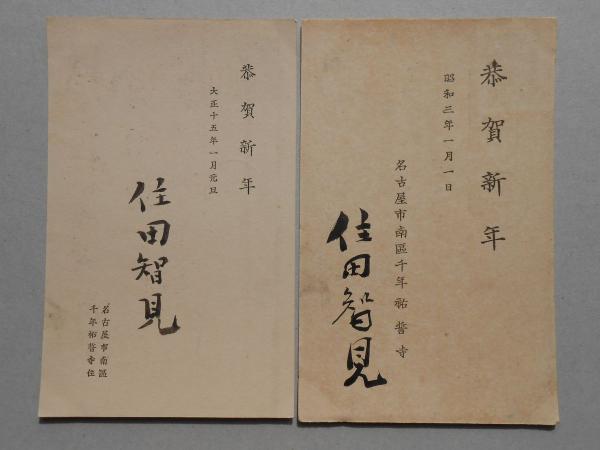 恭賀新年
昭和三年一月一日
名古屋市南區千年 祐誓寺
住田智見
恭賀新年
大正十五年一月元旦
住田智見
名古屋市南區
千年祐誓寺住